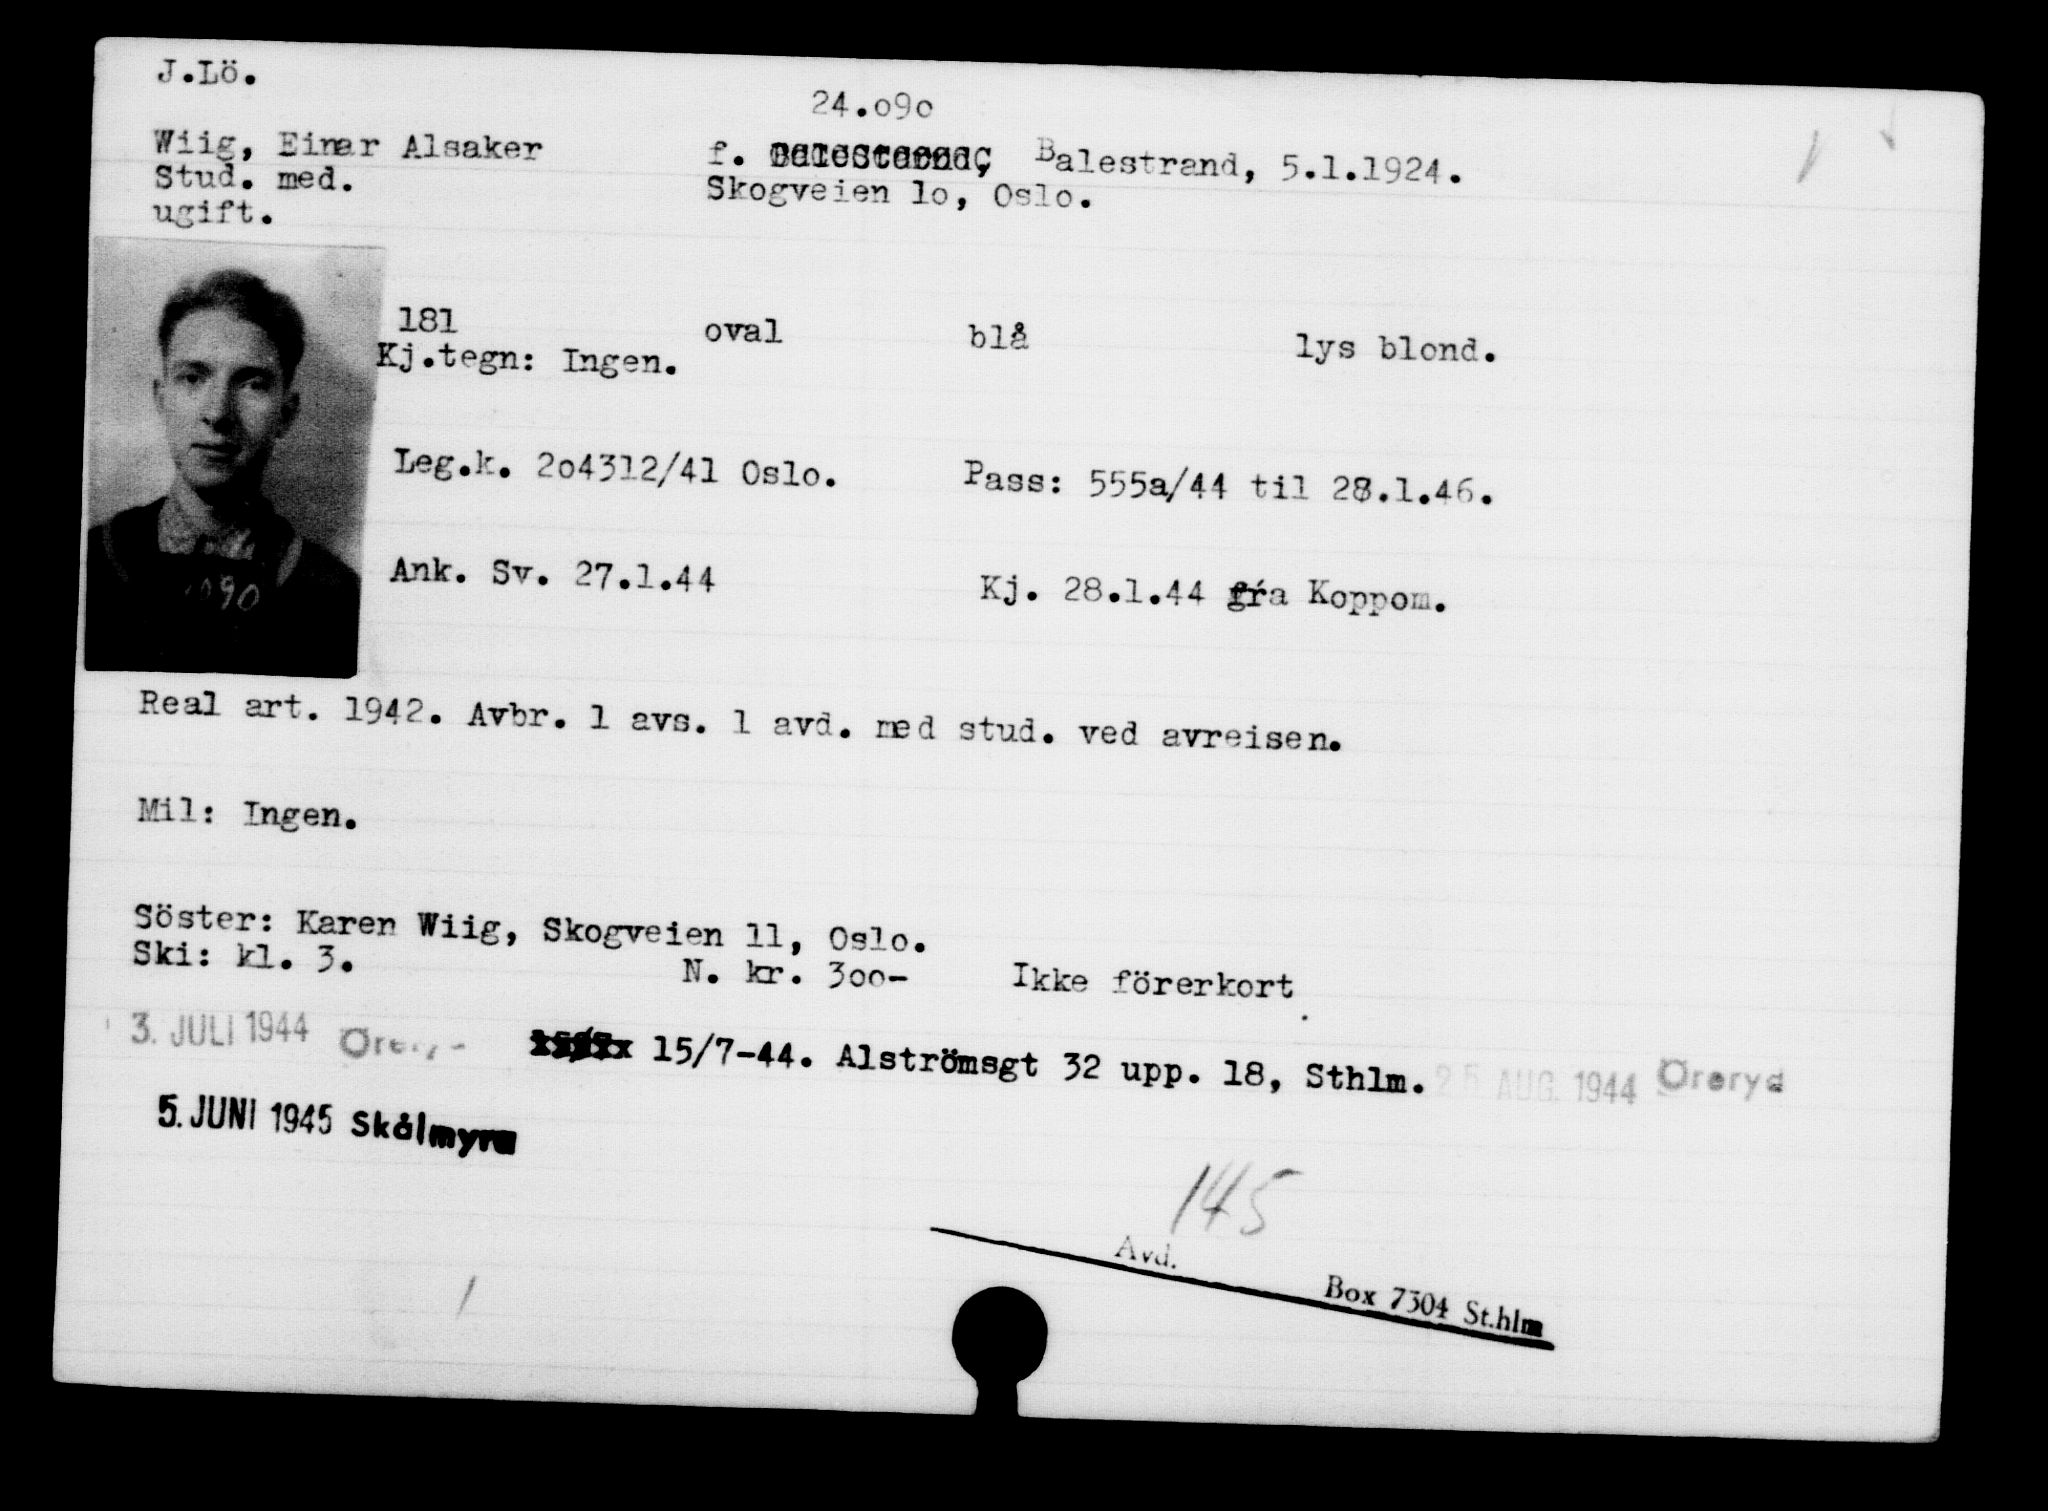 J.Lö.
24.o9o
Wiig, Einar Alsaker
f. Balestrand, 5.1.1924.
Stud. med.
Skogveien lo, Oslo.
ugift.
181 oval blå lys blond.
Kj.tegn: Ingen.
Leg.k. 2o4312/41 Oslo. Pass: 555a/44 til 28.1.46.
Ank. Sv. 27.1.44 Kj. 28.1.44 fra Koppom.
090
Real art. 1942. Avbr. 1 avs. 1 avd. med stud. ved avreisen.
Mil: Ingen.
Söster: Karen Wiig, Skogveien 11, Oslo.
Ski: kl. 3. N. kr. 3oo- Ikke förerkort.
3. JULI 1944 15/7-44. Alströmsgt 32 upp. 18, Sthlm. 25 AUG. 1944 Öreryd
5. JUNI 1945 Skålmyra
145
Avd. Box 7304 St.hlm